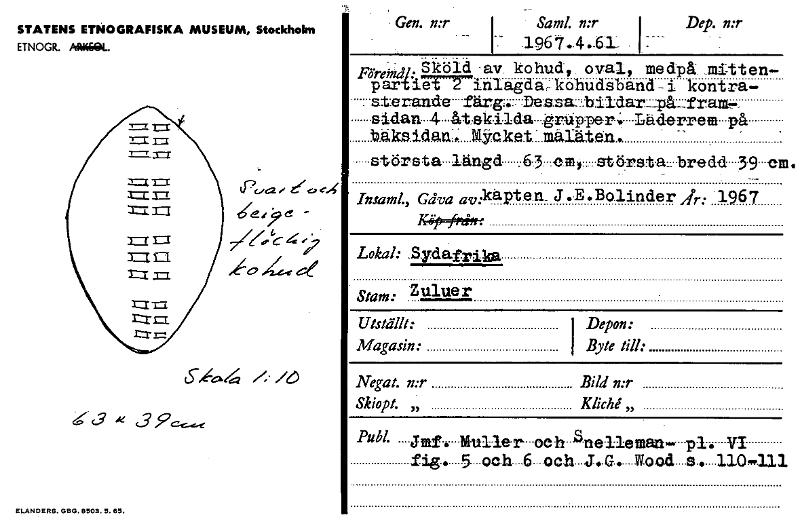 STATENS ETNOGRAFISKA MUSEUM, Stockholm
ETNOGR. ARKEOL.
Svart och
beige-
fläckig
kohud
Skala 1:10
63 x 39 cm
ELANDERS, GBG, 8503, 5. 65.
Gen. n:r
Saml. n:r
1967.4.61
Dep. n:r
Föremål: Sköld av kohud, oval, medpå mitten-
partiet 2 inlagda kohudsband i kontra-
sterande färg. Dessa bildar på fram-
sidan 4 åtskilda grupper. Läderrem på
baksidan. Mycket maläten.
största längd 63 cm, största bredd 39 cm.
Insaml., Gåva av: kapten J.E.Bolinder År: 1967
Köp från:
Lokal: Sydafrika
Stam: Zuluer
Utställt:
Depon:
Magasin:
Byte till:
Negat. n:r
Bild n:r
Skiopt. „
Kliché „
Publ. Jmf. Muller och Snelleman- pl. VI
fig. 5 och 6 och J.G. Wood s. 110-111